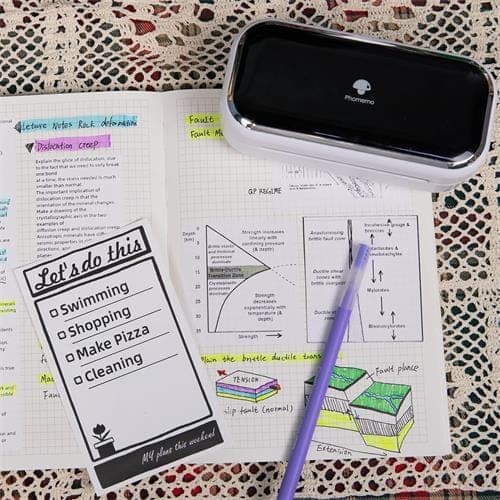 Phomemo
Lecture Notes Rock deformation
Dislocation creep
Explain the glice of dislocation, due
to the fact that we need to only break
one bond
at a time, the stress needed is much
smaller than normal.
The important implication of
dislocation creep is that the
orientation of the mineral changes.
Make a drawing of the
crystallographic axis in the two
examples of
diffusion creep and dislocation creep.
Anisotropic minerals have
seismic properties in
Fault
Fault
Depth
(km)
5
10
15
20
25
30
35
Strength increases
linearly with
confining pressure
(& depth)
Brittle elastic and
frictional processes
dominate
Brittle-Ductile
Transition Zone
Crystalplastic
processes
dominate
Strength
decreases
exponentially with
temperature
(& depth)
Strength
Anastomosing
brittle fault zone
Ductile shear
zones with
brittle
Ductile shear
zones
Incohesive gouge &
breccias
Cataclasites &
pseudotachylite
Mylonites
Blastomylonites
Let's do this
Swimming
Shopping
Make Pizza
Cleaning
MY plans this weekend
the brittle ductile
TENSION
slip fault (normal)
Fault plance
Extension